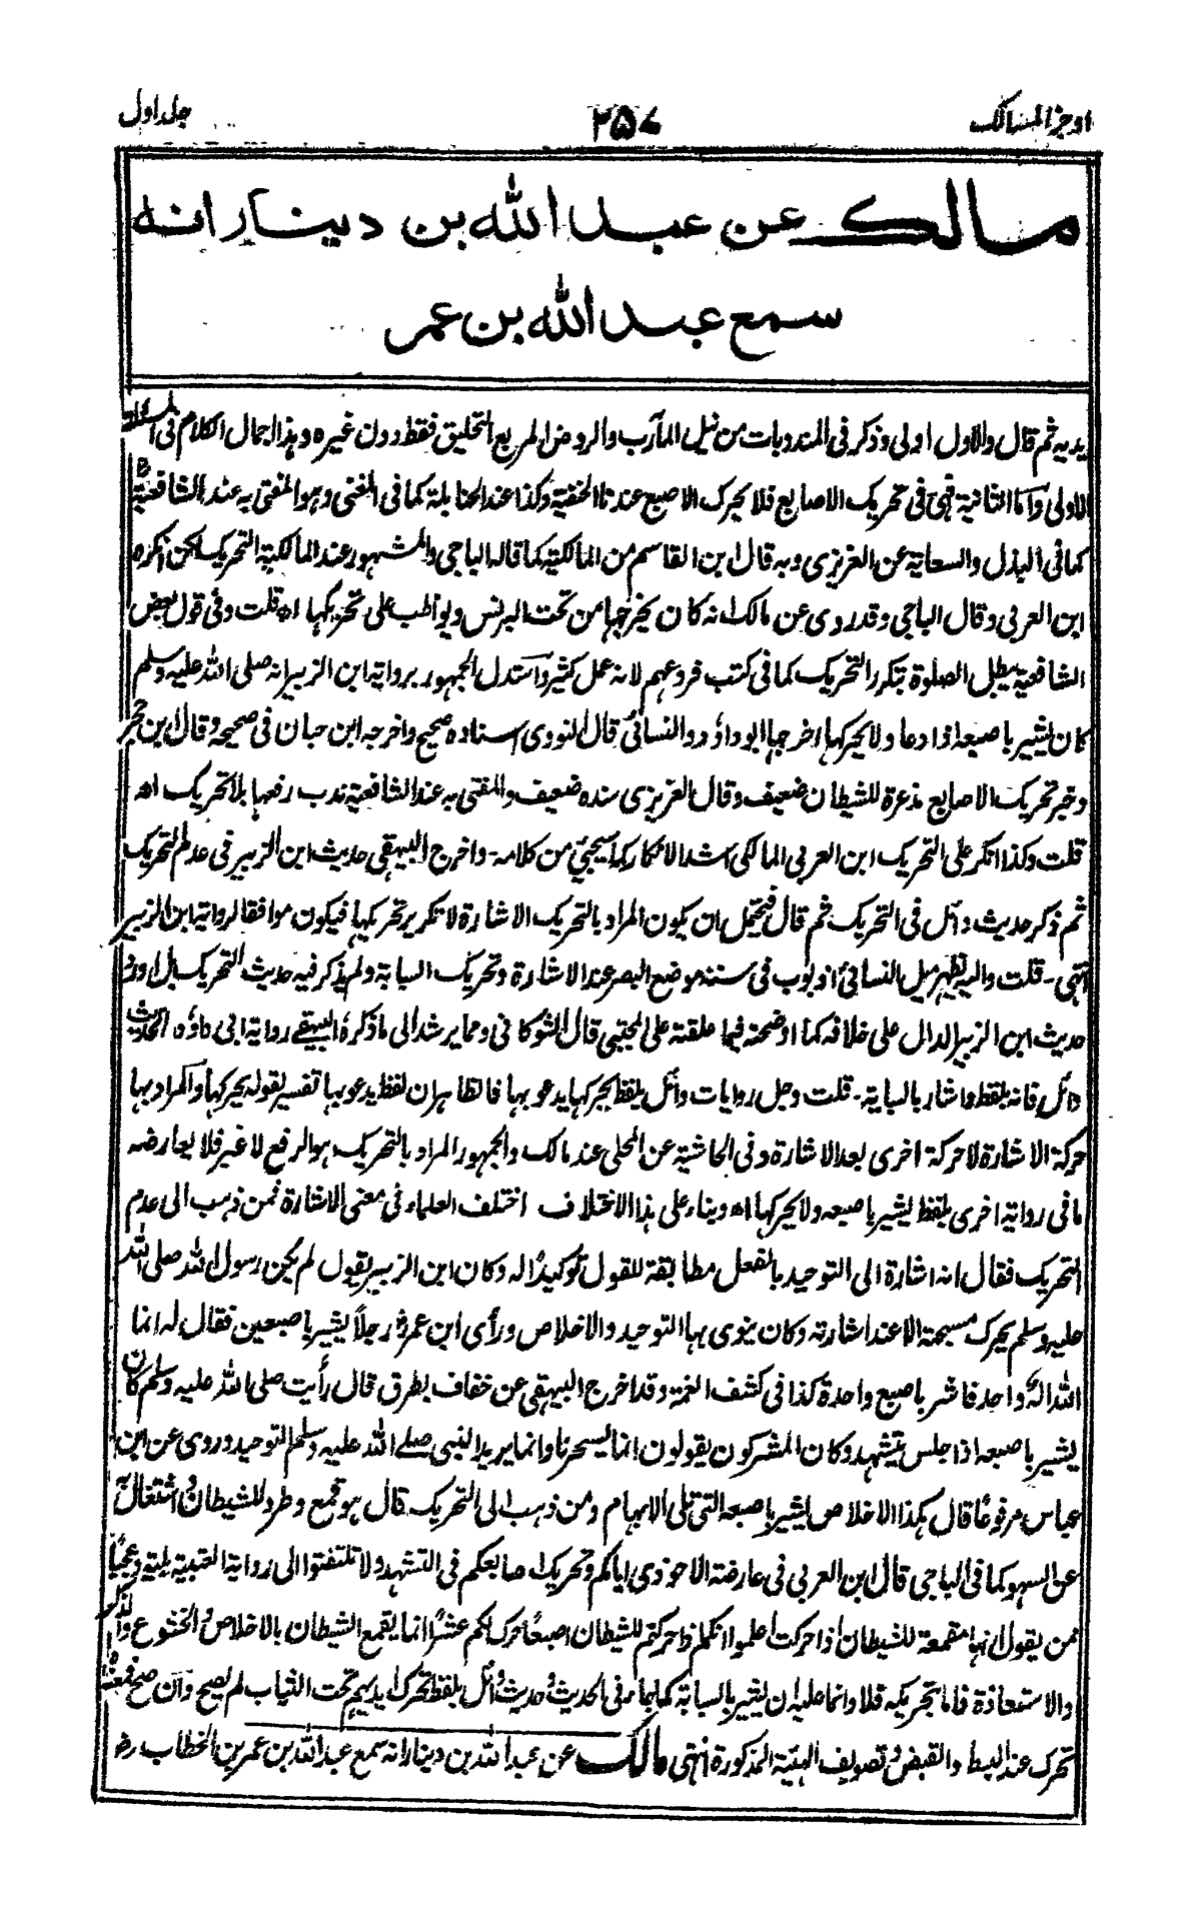 اوجز المسالك ٢٥٧ جلد اول
مالك عن عبد الله بن دينار انه
سمع عبد الله بن عمر
يديه ثم قال والاول اولى وذكر في المندوبات من نيل المآرب والروض المربع التحليق فقط دون غيره وهذا اجمال الكلام في المسئلة
الاولى واما الثانية فهي في تحريك الاصابع فلا يحرك الاصبع عندنا الحنفية وكذا عند الحنابلة كما في المغنى وهو المفتى به عند الشافعية
كما في البذل والسعاية عن العزيزى وبه قال ابن القاسم من المالكية كما قاله الباجي والمشهور عند المالكية التحريك لكن انكره
ابن العربي وقال الباجي وقد روى عن مالك انه كان يخرجها من تحت البرنس ويواظب على تحريكها اه قلت وفي قول بعض
الشافعية يبطل الصلوة بتكرر التحريك كما في كتب فروعهم لانه عمل كثير واستدل الجمهور برواية ابن الزبير انه صلى الله عليه وسلم
كان يشير باصبعه اذا دعا ولا يحركها اخرجها ابو داؤد والنسائي قال النووى اسناده صحيح واخرجه ابن حبان في صحيحه وقال ابن حجر
وخبر تحريك الاصابع مذعرة للشيطان ضعيف وقال العزيزى سنده ضعيف والمفتى به عند الشافعية ندب رفعها بلا تحريك اه
قلت وكذا انكر على التحريك ابن العربي المالكي اشد الانكار كما سيجئ من كلامه - واخرج البيهقى حديث ابن الزبير في عدم التحريك
ثم ذكر حديث وائل في التحريك ثم قال فيحتمل ان يكون المراد بالتحريك الاشارة لا تكرير تحريكها فيكون موافقا لرواية ابن الزبير
انتهى - قلت واليه يظهر ميل النسائي اذ بوب في سننه موضع البصر عند الاشارة وتحريك السبابة ولم يذكر فيه حديث التحريك بل اورد
حديث ابن الزبير الدال على خلافه كما اوضحته فيما علقته على المجتبى قال الشوكاني ومما يرشد الى ما ذكره البيهقي رواية ابى داؤد لحديث
وائل فانه بلفظ واشار بالسبابة - قلت وجل روايات وائل بلفظ يحركها يدعو بها فالظاهر ان لفظ يدعو بها تفسير لقوله يحركها والمراد بها
حركة الاشارة لا حركة اخرى بعد الاشارة وفي الحاشية عن المحلى عند مالك والجمهور المراد بالتحريك هو الرفع لا غير فلا يعارضه
ما في رواية اخرى بلفظ يشير باصبعه ولا يحركها اه وبناء على هذا الاختلاف اختلف العلماء في معنى الاشارة فمن ذهب الى عدم
التحريك فقال انه اشارة الى التوحيد بالفعل مطابقة للقول توكيدًا له وكان ابن الزبير يقول لم يكن رسول الله صلى الله
عليه وسلم يحرك مسبحته الا عند اشارته وكان ينوى بها التوحيد والاخلاص ورأى ابن عمر رض رجلاً يشير باصبعين فقال له انما
الله اله واحد فاشر باصبع واحدة كذا في كشف الغمة وقد اخرج البيهقى عن خفاف بطرق قال رأيت صلى الله عليه وسلم كان
يشير باصبعه اذا جلس يتشهد وكان المشركون يقولون انما يسحرنا وانما يريد النبي صلى الله عليه وسلم التوحيد وروى عن ابن
عباس مرفوعًا قال هكذا الاخلاص يشير باصبعه التي تلى الابهام ومن ذهب الى التحريك قال هو قمع وطرد للشيطان واشتغال
عن السهو كما في الباجي قال ابن العربي في عارضة الاحوذى اياكم وتحريك اصابعكم في التشهد ولا تلتفتوا الى رواية العتبية بلية وعجبًا
ممن يقول انها مقمعة للشيطان اذا حركت اعلموا انكم اذا حركتم للشيطان اصبعًا حرك لكم عشرًا انما يقمع الشيطان بالاخلاص والخشوع والذكر
والاستعاذة فاما بتحريكه فلا وانما عليه ان يشير بالسبابة كما جاء في الحديث وحديث وائل بلفظ تحرك ايديهم تحت الثياب لم يصح وان صح فمعناه
تحرك عند البسط والقبض وتصريف الهيئة المذكورة انتهى مالك عن عبد الله بن دينار انه سمع عبد الله بن عمر بن الخطاب رض